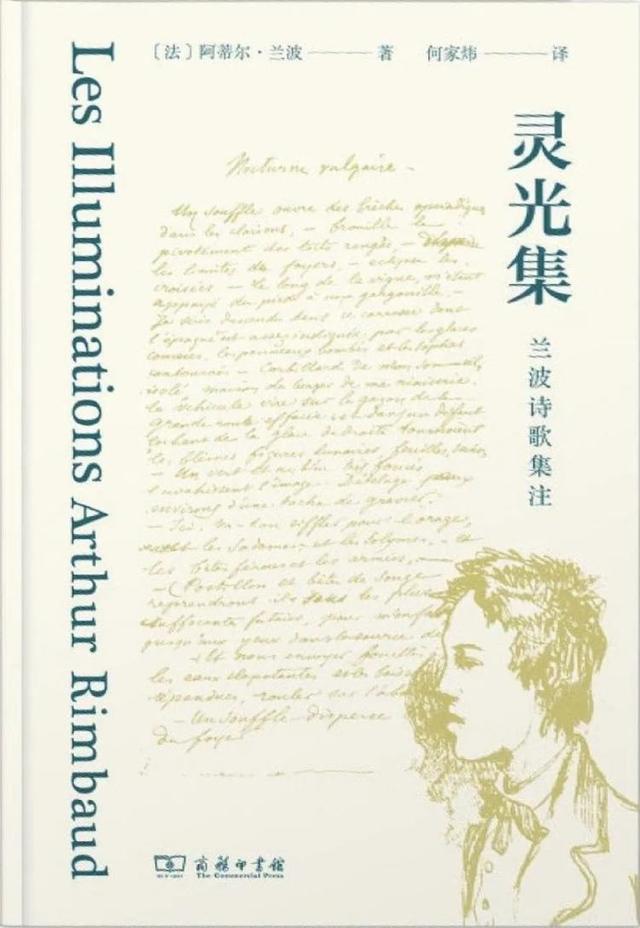 〔法〕阿蒂尔·兰波————著 何家炜————译
Les Illuminations Arthur Rimbaud
灵光集
兰波诗歌集注
Nocturne vulgaire.
Un souffle ouvre des brèches operadiques
dans les cloisons, — brouille le
pivotement des toits rongés, — disperse
les limites des foyers, — eclipse les
croisées — Le long de la vigne, m'étant
appuyé du pied à une gargouille, —
Je suis descendu dans ce carrosse dont
l'époque est assez indiquée par les glaces
convexes, les panneaux bombés et les sophas
contournés — Corbillard de mon sommeil,
isolé, maison de berger de ma niaiserie,
le véhicule vire sur le gazon de la
grande route effacée: et dans un défaut
en haut de la glace de droite tournoient
les blêmes figures lunaires, feuilles, seins;
— Un vert et un bleu très foncés
envahissent l'image. Dételage
environs d'une tache de gravier.
— Ici, va-t-on siffler pour l'orage,
et les Sodomes, et les Solymes, — et
les bêtes féroces et les armées, —
— (Postillon et bêtes de songe
reprendront-ils sous les plus
suffocantes futaies, pour m'enfoncer
jusqu'aux yeux dans la source de
— Et nous envoyer, fouettés
les eaux clapotantes et les boissons
répandues, rouler sur l'aboi
— Un souffle disperse
du foyer
商务印书馆
The Commercial Press